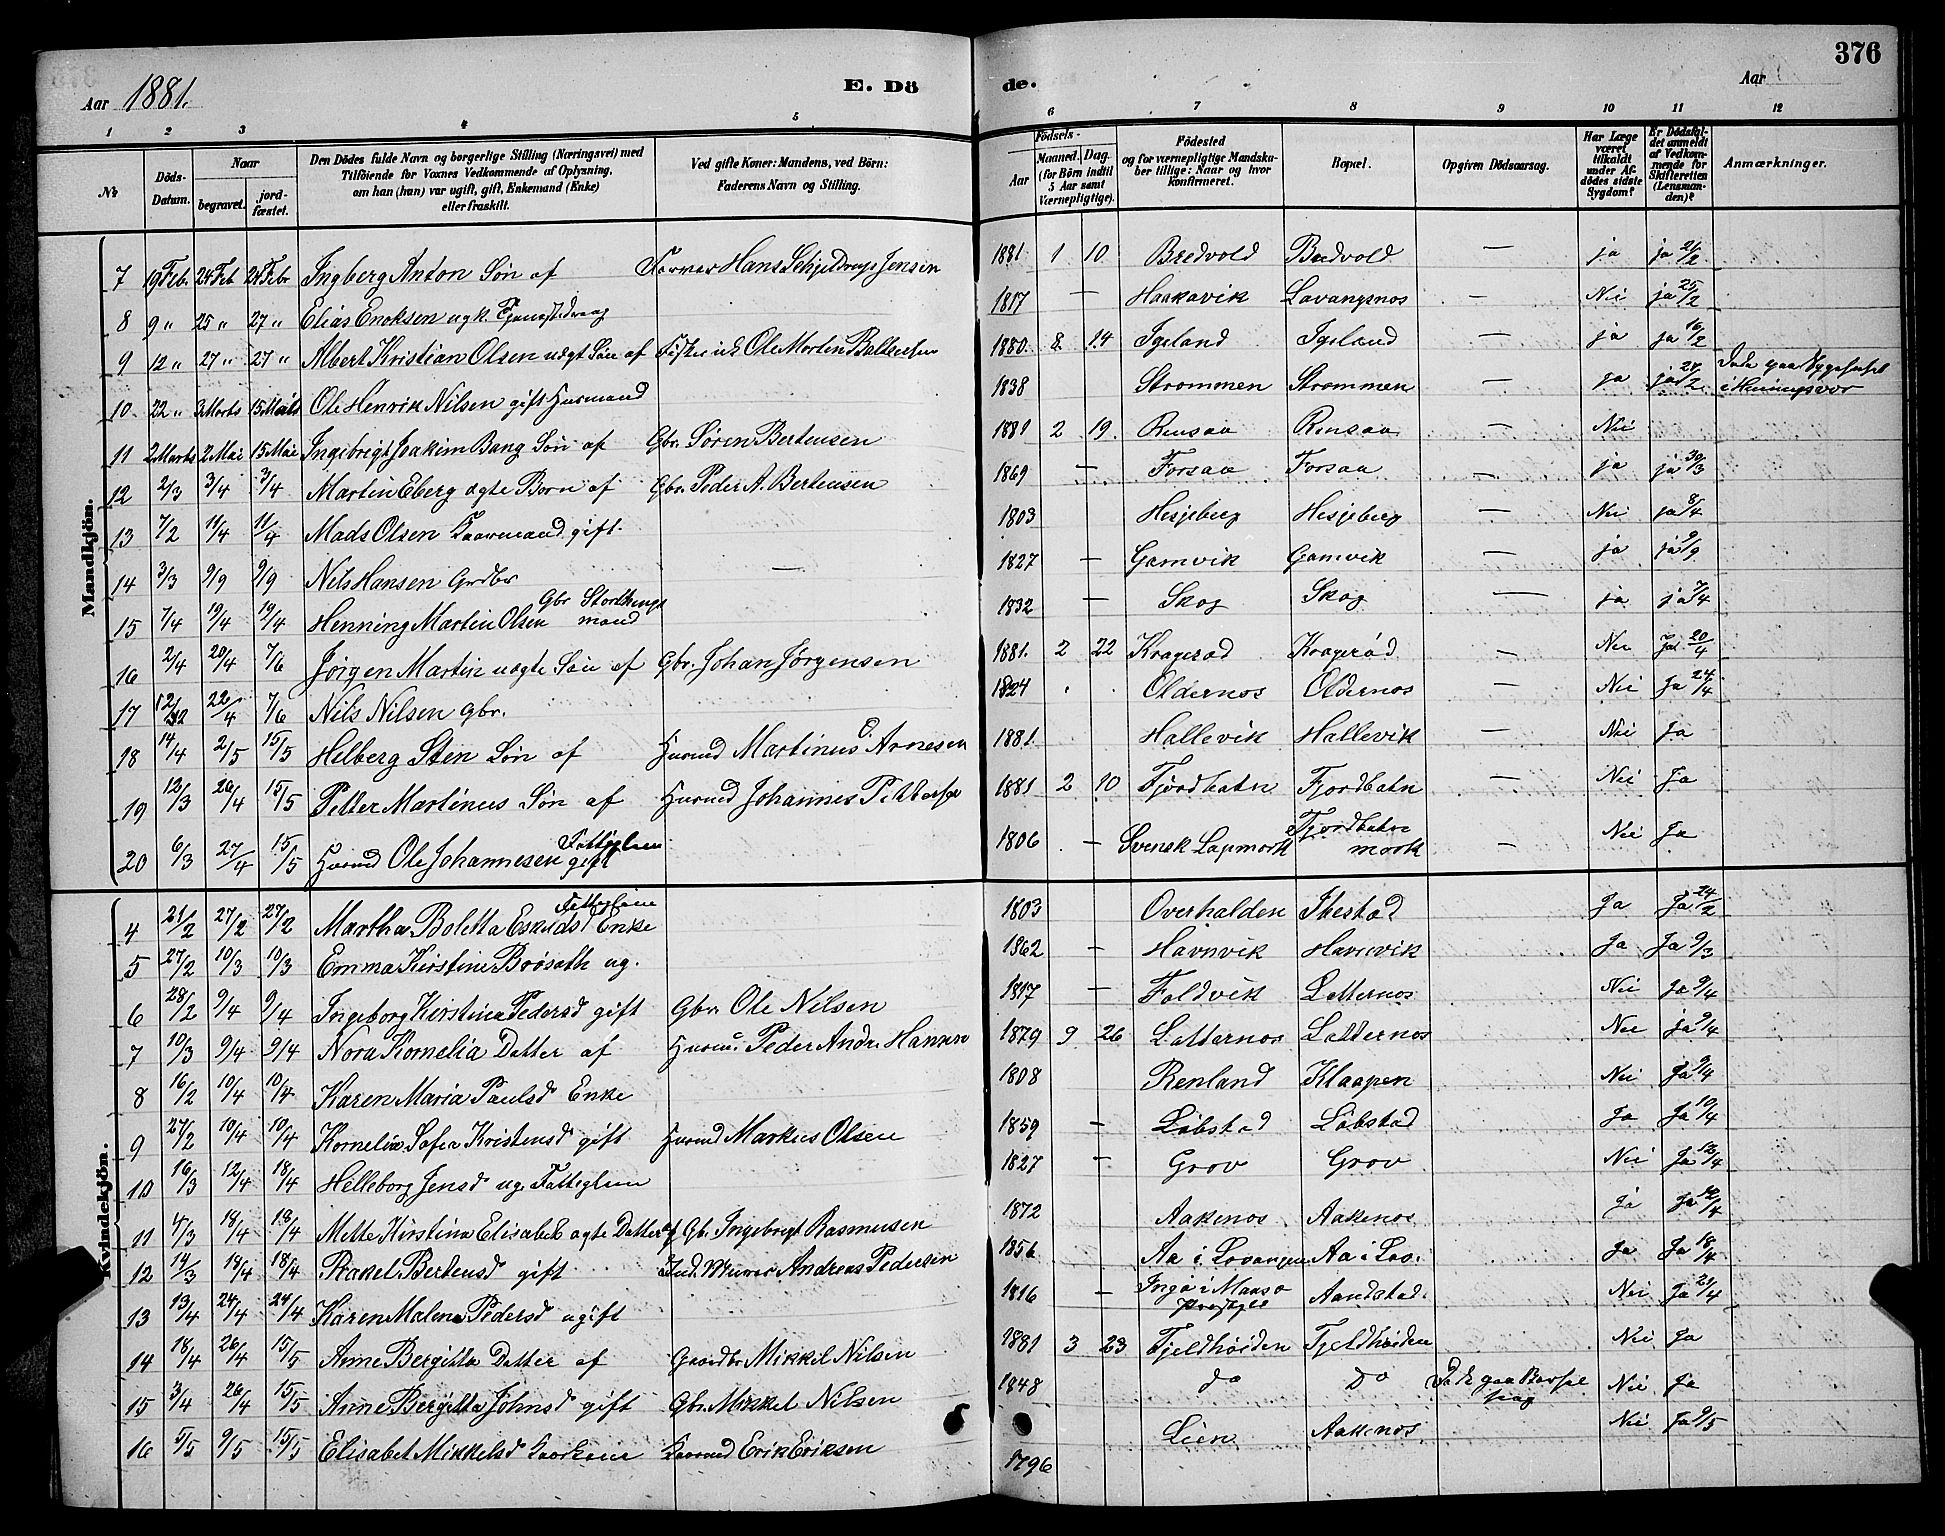 376
Aar 1881.
E. Dö
de.
Aar
1 2 3 4 5 6 7 8 9 10 11 12
№
Döds-Datum.
Naar
begravet.
jord-fæstet.
Den Dödes fulde Navn og borgerlige Stilling (Næringsvei) med
Tilföiende for Voxnes Vedkommende af Oplysning,
om han (hun) var ugift, gift, Enkemand (Enke)
eller fraskilt.
Ved gifte Koner: Mandens, ved Börn:
Faderens Navn og Stilling.
Födsels-
Aar
Maaned.
Dag.
(for Börn indtil 5 Aar samt Værnepligtige).
Födested
og for værnepligtige Mandska-
ber tillige: Naar og hvor
konfirmeret.
Bopæl.
Opgiven Dödsaarsag.
Har Læge været tilkaldt under Af-dödes sidste Sygdom?
Er Dödsfal-det anmeldt af Vedkom-mende for Skifteretten (Lensman-den)?
Anmærkninger.
Mandkjön.
7 19 Feb. 24 Feb 24 Febr Ingberg Anton Sön af Hans Jensen 1881 1 10 Bredvold Bredvold — ja ja 21/2
8 9 " 25 " 27 " Elias Enoksen ugk. 1817 — Haakavik Lavangsnos — Nei ja 25/2
9 12 " 27 " 27 " Albert Kristian Olsen uægt Sön af Ole Morten 1880 8 14 Igeland Igeland — ja ja 16/2
10 22 " 3 Marts 15 Mai Ole Henrik Nilsen gift Husmand 1838 Strommen Strommen — ja ja 27/2 i Henningsvær
11 2 Marts 2 Mai 15 Mai Ingebrigt Joakim Bang Sön af Gbr. Sören Bertensen 1881 2 19 Rensaa Rensaa — Nei
12 2/3 3/4 3/4 Martin Eberg ægte Barn af Gbr. Peder A. Bertensen 1869 — Forsaa Forsaa — ja ja 30/3
13 7/2 11/4 11/4 Mads Olsen Kaarmand gift. 1803 Hesjeberg Hesjeberg — Nei ja 8/4
14 3/3 9/9 9/9 Nils Hansen Grdbr — 1827 — Gamvik Gamvik — ja ja 9/9
15 7/4 19/4 19/4 Henning Martin Olsen Gbr Storthings mand 1832 — Skog Skog — ja ja 7/4
16 2/4 20/4 7/6 Jörgen Martin uægte Sön af Gbr. Johan Jörgensen 1881. 2 22 Krageröd Kragerød — Nei Ja 20/4
17 22/4 7/6 Nils Nilsen Gbr. 1824 Oldernos Oldernos — Nei Ja 24/4
18 14/4 2/5 15/5 Helberg Sten Sön af Husmd Martinus Arnesen 1881. Hallevik Hallevik — Nei Ja
19 12/3 26/4 15/5 Petter Martinus Sön af Husmd Johannes 1881 2 10 Fjordbotn Fjordbotn — Nei Ja
20 6/3 27/4 15/5 Husmd Ole Johannesen gift Fattiglem 1806 — Svensk Lapmark Fjordbotn mark — Nei Ja
Kvindekjön.
4 21/2 27/2 27/2 Martha Boletta Enke Fattiglem 1803 Overhalden Ibestad Ja Ja 24/2
5 27/2 10/3 10/3 Emma Kirstine ug. 1862 — Havnvik Havnvik Ja Ja 9/3
6 28/2 9/4 9/4 Ingeborg Kirstina Pedersd gift Gbr. Ole Nilsen 1817 — Foldvik Latternos Nei Ja 9/4
7 10/3 9/4 9/4 Nora Kornelia Datter af Husm. Peder Andr. Hansen 1879 9 26 Latternos Latternos Nei ja 9/4
8 16/2 10/4 10/4 Karen Maria Paulsd Enke 1808 Renland Klaapen Nei Ja 9/4
9 27/2 10/4 10/4 Kornelia Sofia Kristensd gift Husmd Markus Olsen 1859 — Löbstad Löbstad Ja Ja 10/4
10 16/3 12/4 18/4 Helleborg Jensd ug. Fattiglem 1827 — Grov Grov Nei Ja 12/4
11 4/3 18/4 18/4 Mette Kirstina Elisabet ægte Datter af Gbr. Ingebrigt Rasmusen 1872 Aakenos Aakenos Ja Ja 12/4
12 14/3 18/4 18/4 Rakel Bertensd gift Andreas Pedersen 1856 Aa i Lavangen Aa i Lav. Ja Ja 18/4
13 13/4 24/4 24/4 Karen Malena Pedersd ugift 1816 — Aandstad Nei Ja 21/4
14 18/4 26/4 15/5 Anne Bergitta Datter af Gaardbr Mikkel Nilsen 1881 3 23 Fjeldhöiden Fjeldhöiden Nei Ja
15 3/4 26/4 15/5 Anne Bergitta Johnsd gift Gbr. Mikkel Nilsen 1848 do Do Nei Ja
16 5/5 9/5 15/5 Elisabet Mikkelsd Kaarkone Kaarmd Erik Eriksen 1796 Lien Aakenos Nei Ja 9/5